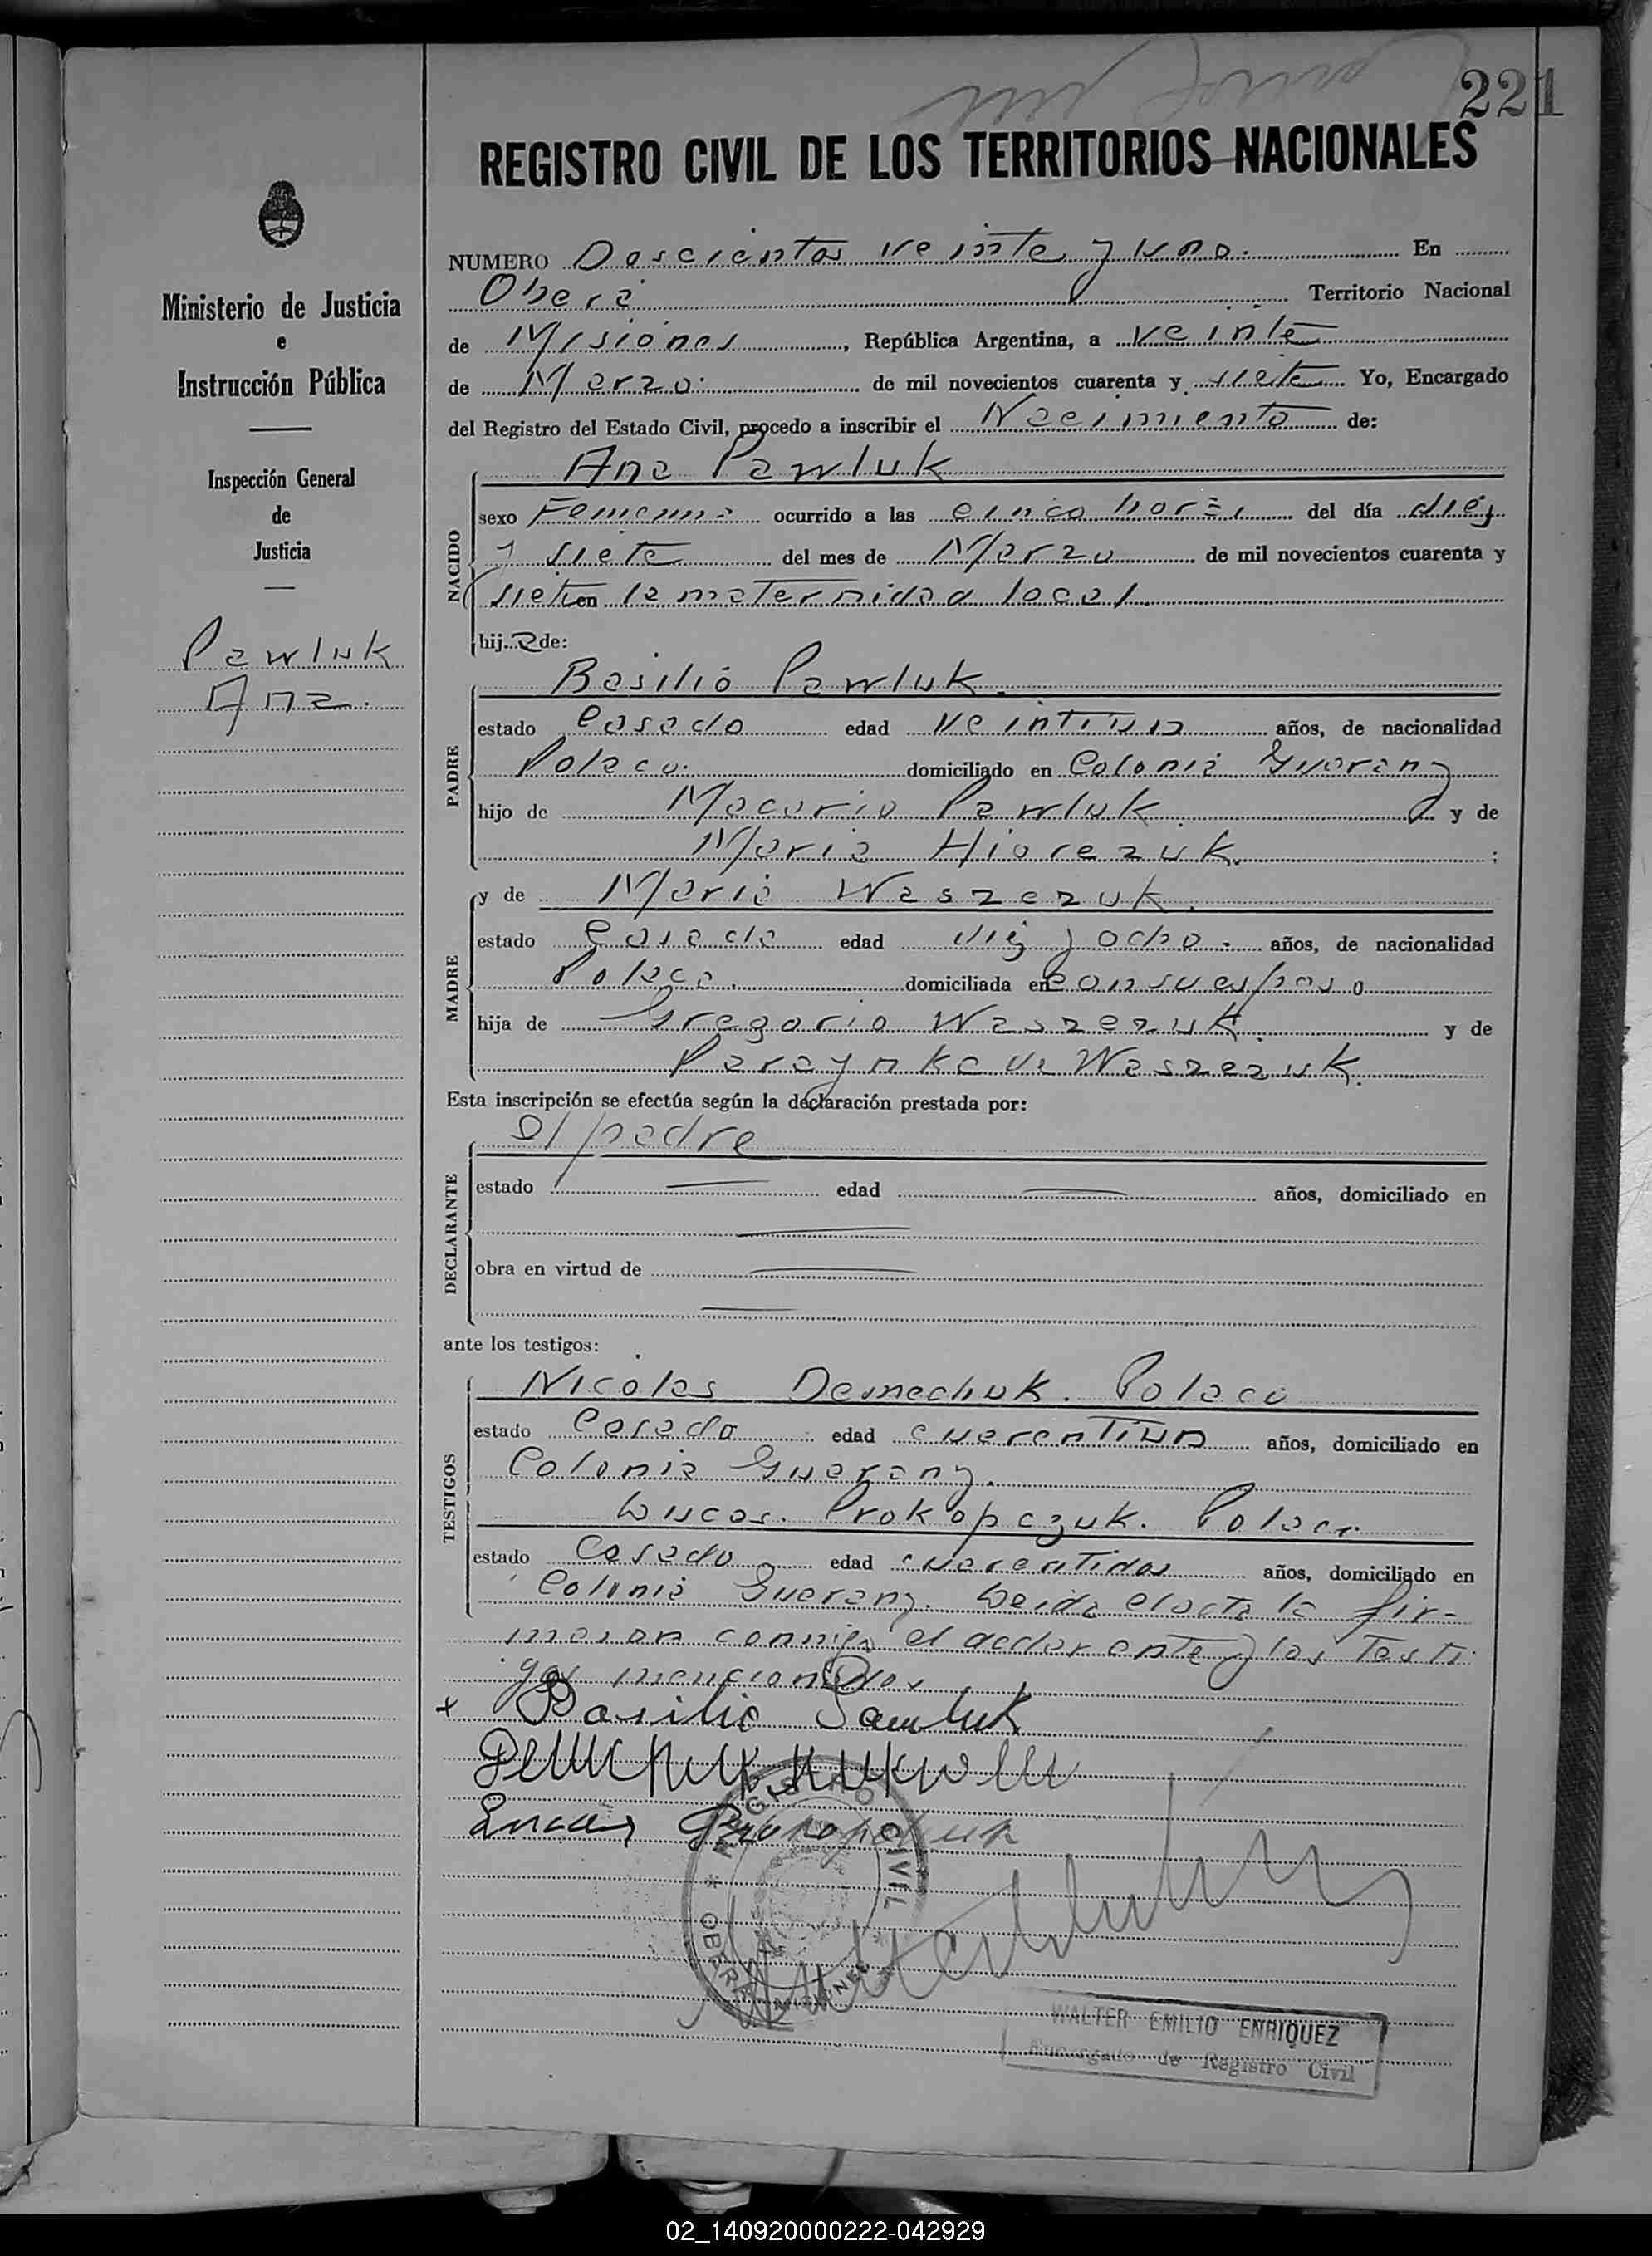 221
REGISTRO CIVIL DE LOS TERRITORIOS NACIONALES
Ministerio de Justicia
e
Instrucción Pública
Inspección General
de
Justicia
Pawluk
Ana.
NUMERO Doscientos veinte y uno. En
Oberá Territorio Nacional
de Misiones, República Argentina, a veinte
de Marzo. de mil novecientos cuarenta y siete Yo, Encargado
del Registro del Estado Civil, procedo a inscribir el Nacimiento de:
Ana Pawluk
NACIDO
sexo Femenino ocurrido a las cinco horas del día diez
y siete del mes de Marzo de mil novecientos cuarenta y
siete en la maternidad local.
hija de:
Basilio Pawluk.
PADRE
estado casado edad veintiun años, de nacionalidad
Polaco. domiciliado en Colonia Guarany
hijo de Macario Pawluk. y de
Maria Hiorezuk. ;
y de Maria Waszezuk.
MADRE
estado casada edad diez y ocho - años, de nacionalidad
Polaca. domiciliada en con su esposo
hija de Gregorio Waszezuk. y de
Paraynka de Waszezuk.
Esta inscripción se efectúa según la declaración prestada por:
el padre
DECLARANTE
estado edad años, domiciliado en
obra en virtud de
ante los testigos:
Nicolas Demechuk. Polaco
TESTIGOS
estado Casado edad cuarentiun años, domiciliado en
Colonia Guarany.
Lucas. Prokopczuk. Polaco
estado Casado edad cuarentidos años, domiciliado en
Colonia Guarany. Leida el acta la fir-
maron conmigo el declarante y los testi
gos mencionados
+ Basilio Pawluk
Lucas
REGISTRO CIVIL
* OBERA MISIONES
WALTER EMILIO ENRIQUEZ
Encargado de Registro Civil
02_140920000222-042929